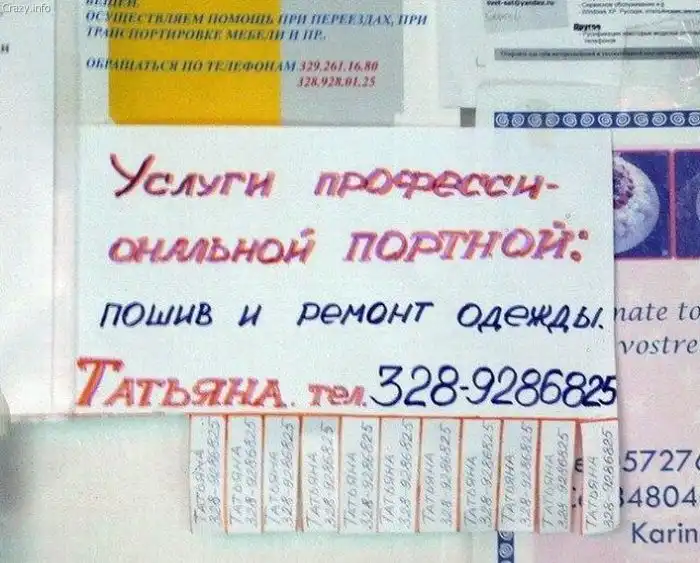 Crazy.info
ВЕЩЕЙ.
ОСУЩЕСТВЛЯЕМ ПОМОЩЬ ПРИ ПЕРЕЕЗДАХ, ПРИ
ТРАНСПОРТИРОВКЕ МЕБЕЛИ И ПР..
ОБРАЩАТЬСЯ ПО ТЕЛЕФОНАМ 329.261.16.80
328.928.01.25
Другое
Услуги професси-
ональной ПОРТНОЙ:
пошив и ремонт одежды.
ТАТЬЯНА. тел. 328-9286825
nate to
vostre
5727
34804
Karin
ТАТЬЯНА 328-9286825
ТАТЬЯНА 328-9286825
ТАТЬЯНА 328-9286825
ТАТЬЯНА 328-9286825
ТАТЬЯНА 328-9286825
ТАТЬЯНА 328-9286825
ТАТЬЯНА 328-9286825
ТАТЬЯНА 328-9286825
ТАТЬЯНА 328-9286825
ТАТЬЯНА 328-9286825
ТАТЬЯНА 328-9286825